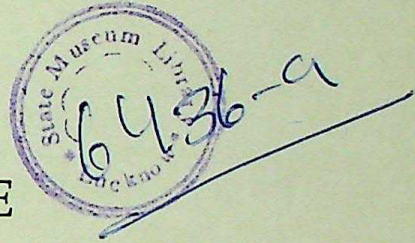 State Museum Library
Lucknow
6436-a
[1]